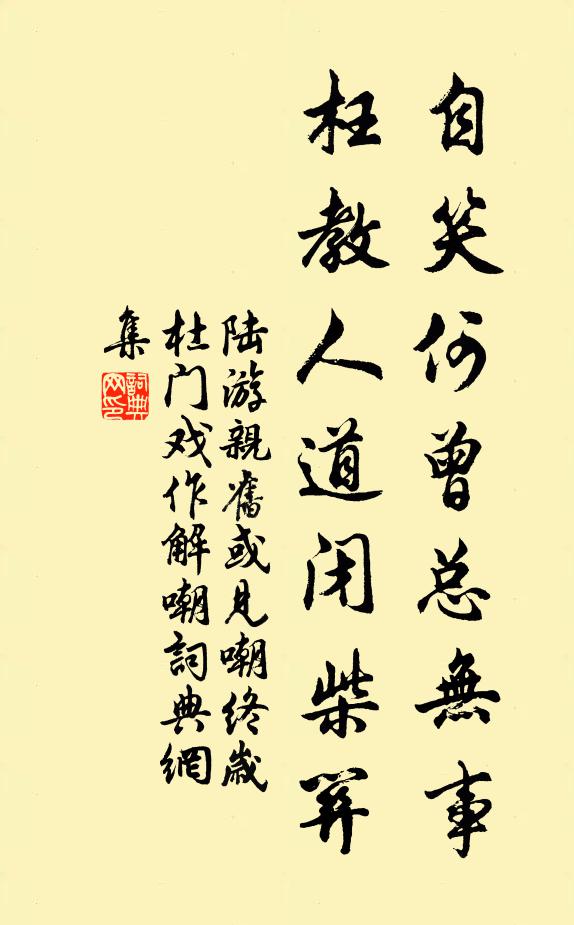 自笑何曾总無事
枉教人道闭柴關
陆游親舊或見嘲终歲
杜门戏作解嘲詞典網
集
詞典
网印